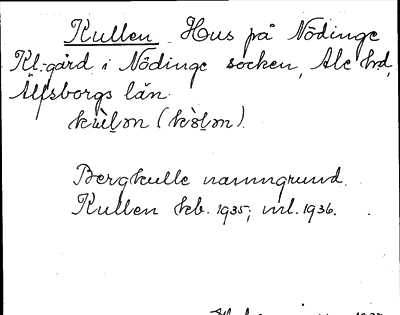 Kullen Hus på Nödinge
Kl.-gård i Nödinge socken, Ale hrd,
Älfsborgs län.
Bergkulle namngrund.
Kullen kb. 1935; inl. 1936.